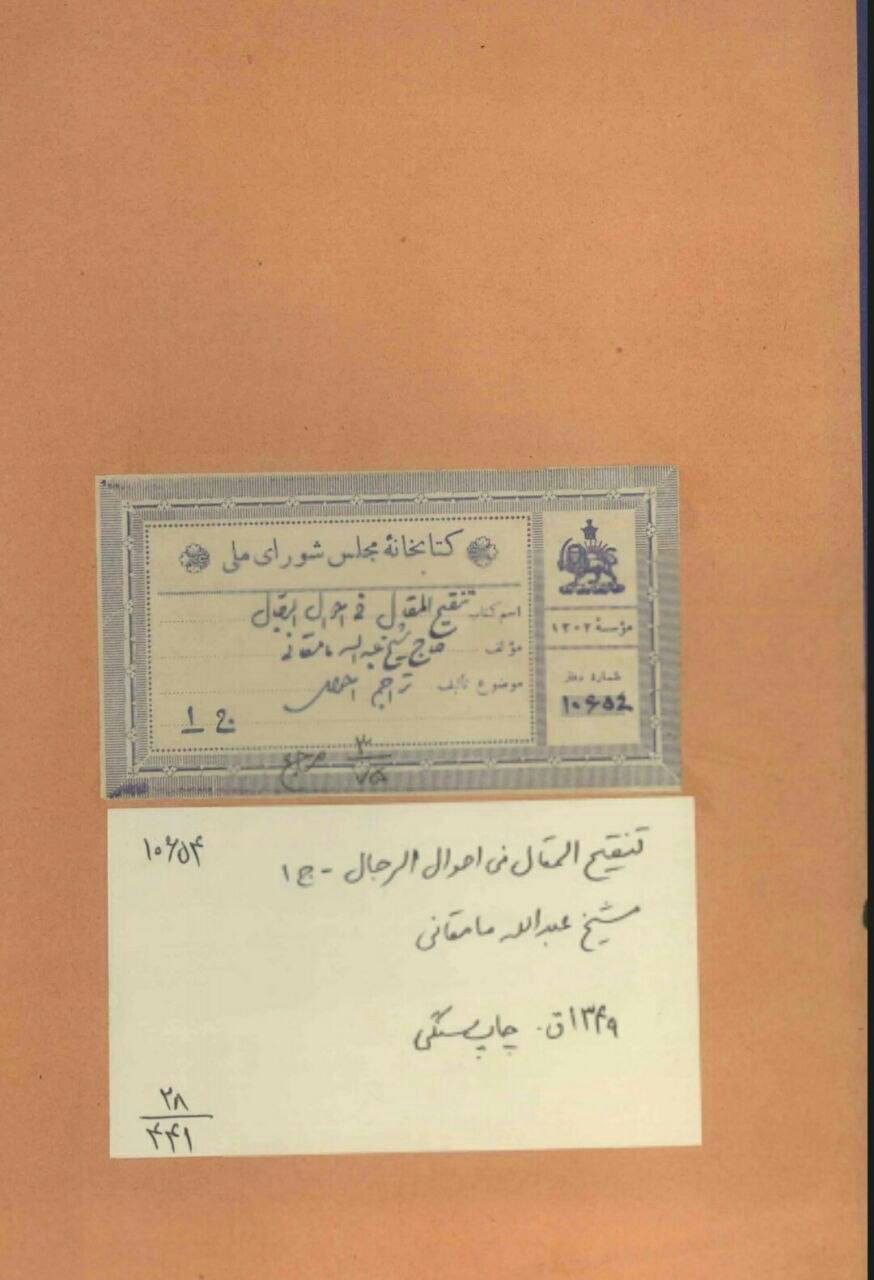 کتابخانهٔ مجلس شورای ملی
اسم کتاب تنقیح المقال فی احوال الرجال
مؤلف حاج شیخ عبدالله مامقانی
موضوع تألیف تراجم احوال
ج ۱
مؤسسهٔ ۱۳۰۲
شمارهٔ دفتر
۱۰۶۵۴
۳
۷۵
۱۰۶۵۴
تنقیح المقال فی احوال الرجال - ج ۱
شیخ عبدالله مامقانی
۱۳۴۹ق. چاپ سنگی
۲۸
۴۴۱